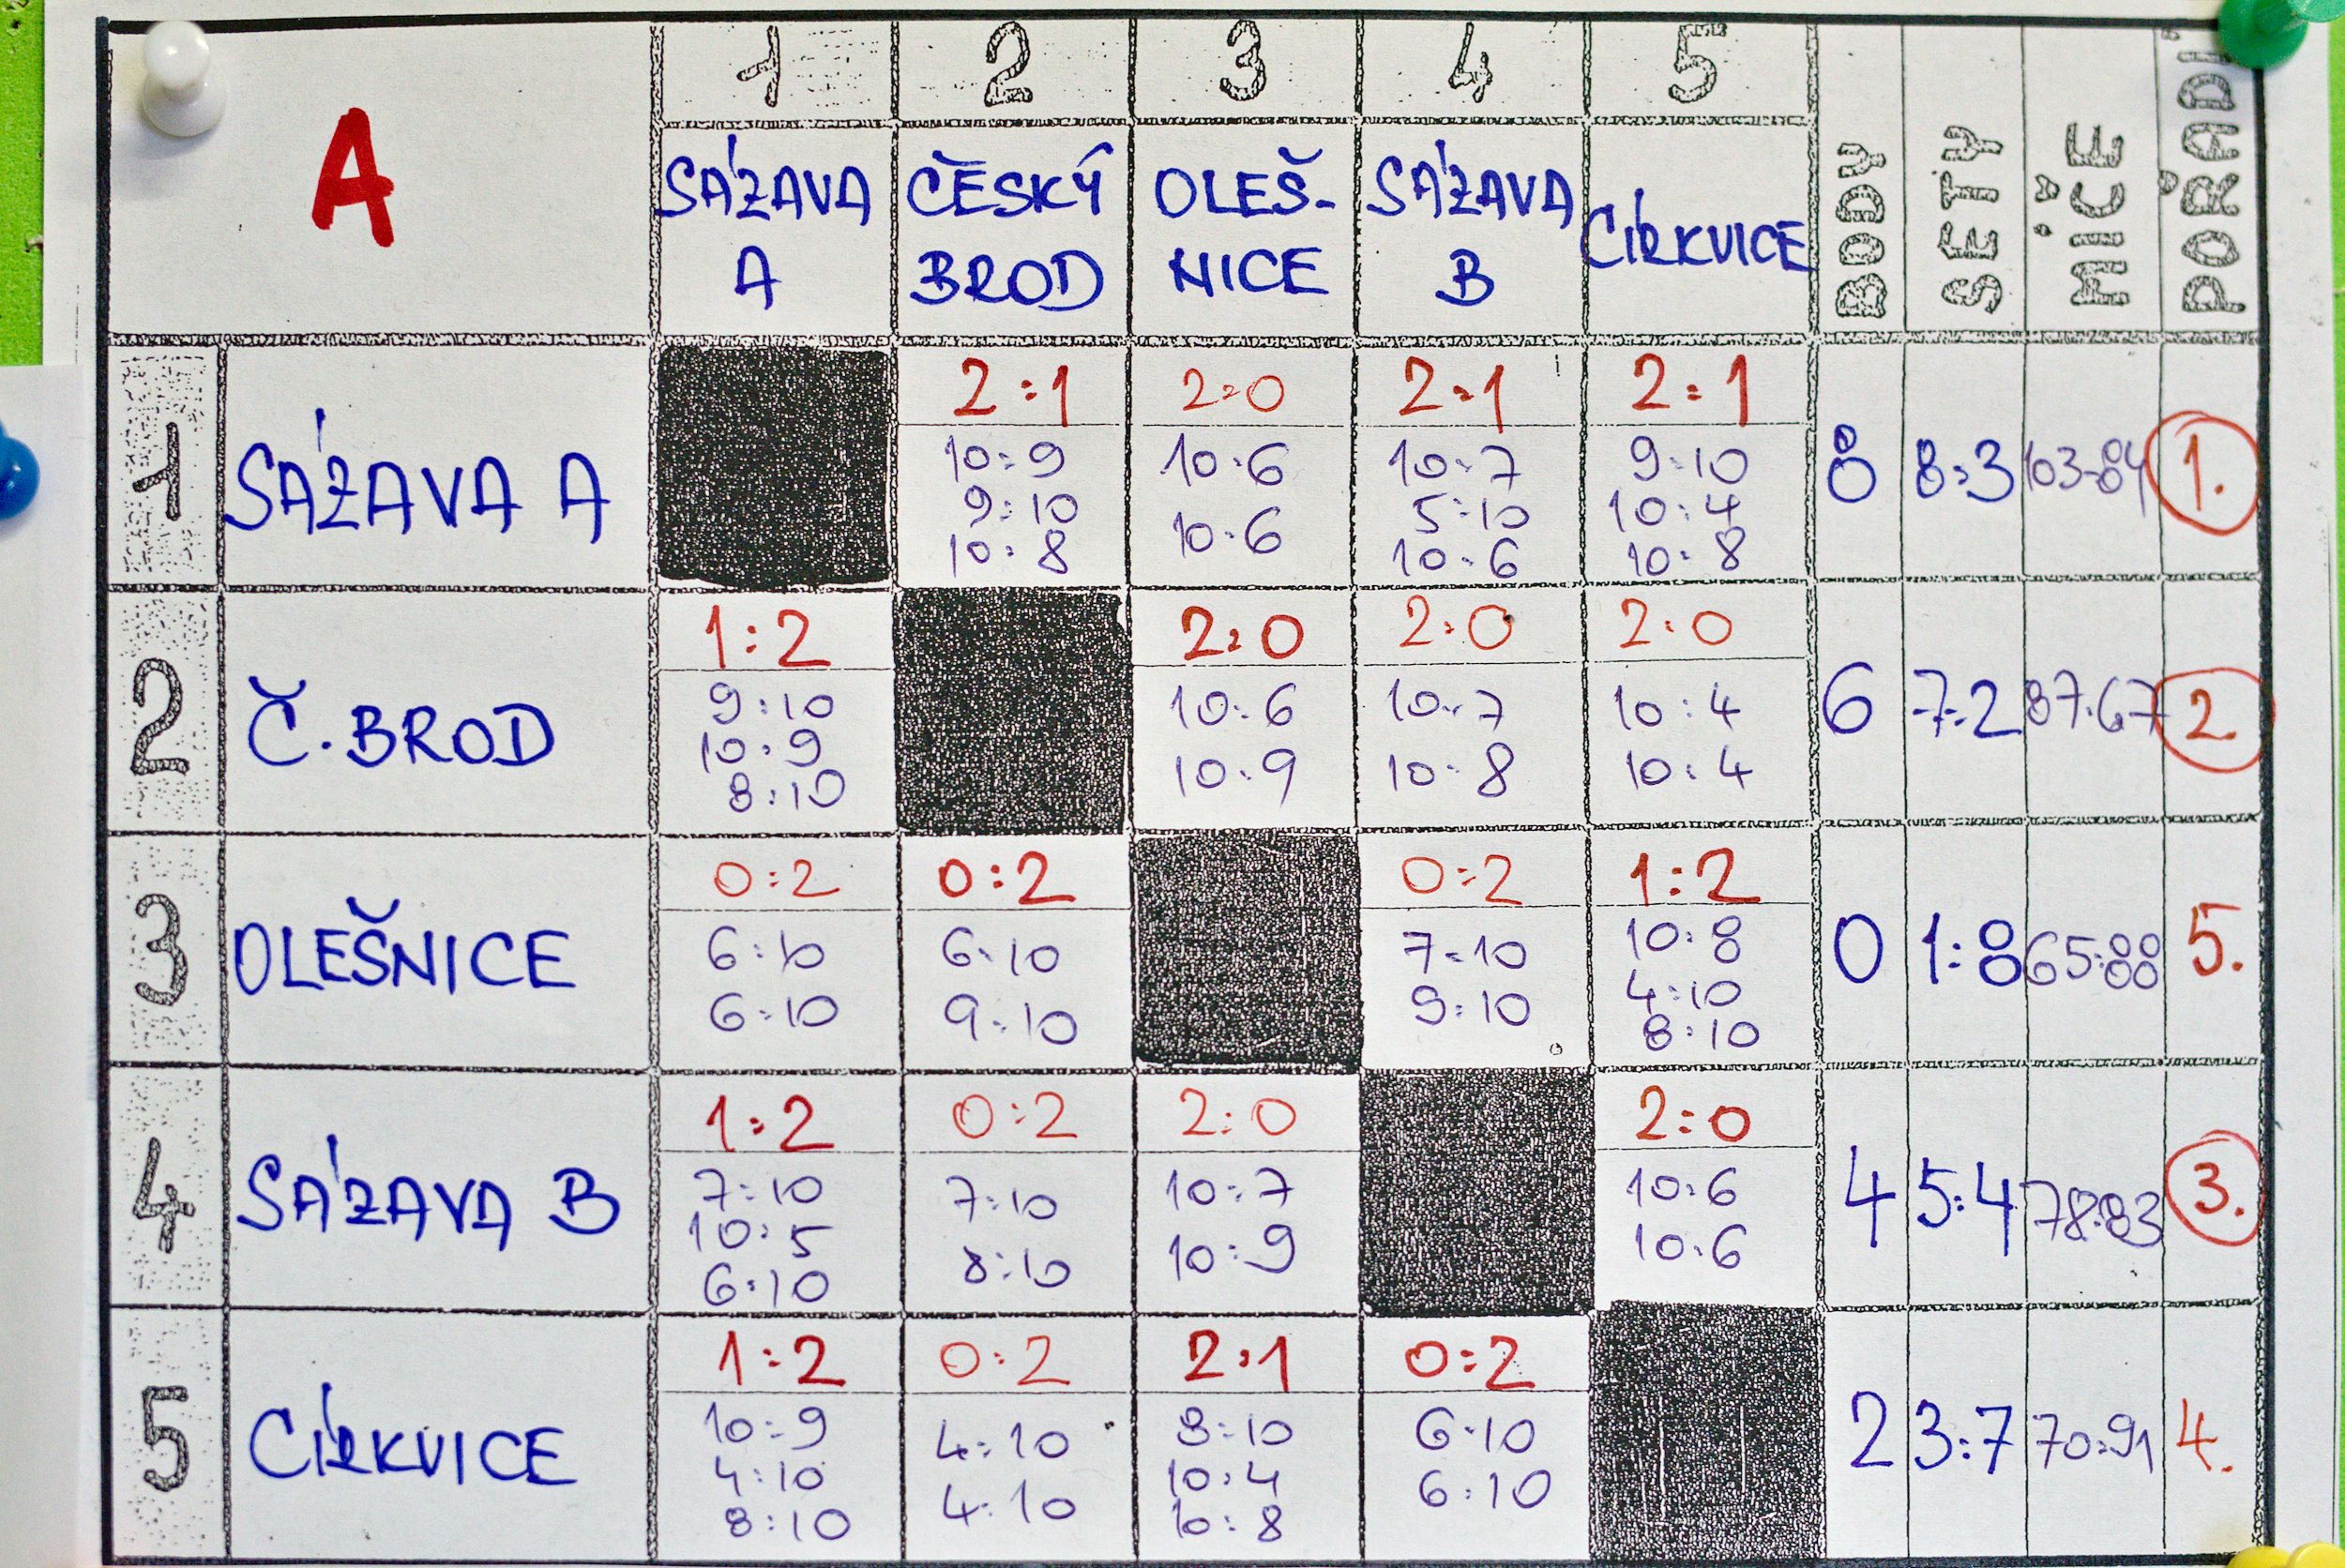 A
1 2 3 4 5
SÁZAVA A
ČESKÝ BROD
OLEŠ-
NICE
SÁZAVA B
CÍRKVICE
BODY
SETY
MÍČE
POŘADÍ
1 SÁZAVA A
2:1 2:0 2:1 2:1
10:9 10:6 10:7 9:10
9:10 10:6 5:10 10:4
10:8 10:6 10:8
8 8:3 103:84 1.
2 Č.BROD
1:2 2:0 2:0 2:0
9:10 10:6 10:7 10:4
10:9 10:9 10:8 10:4
8:10
6 7:2 87:67 2.
3 OLEŠNICE
0:2 0:2 0:2 1:2
6:10 6:10 7:10 10:8
6:10 9:10 9:10 4:10
8:10
0 1:8 65:88 5.
4 SÁZAVA B
1:2 0:2 2:0 2:0
7:10 7:10 10:7 10:6
10:5 8:10 10:9 10:6
6:10
4 5:4 78:83 3.
5 CÍRKVICE
1:2 0:2 2:1 0:2
10:9 4:10 8:10 6:10
4:10 4:10 10:4 6:10
8:10 10:8
2 3:7 70:91 4.